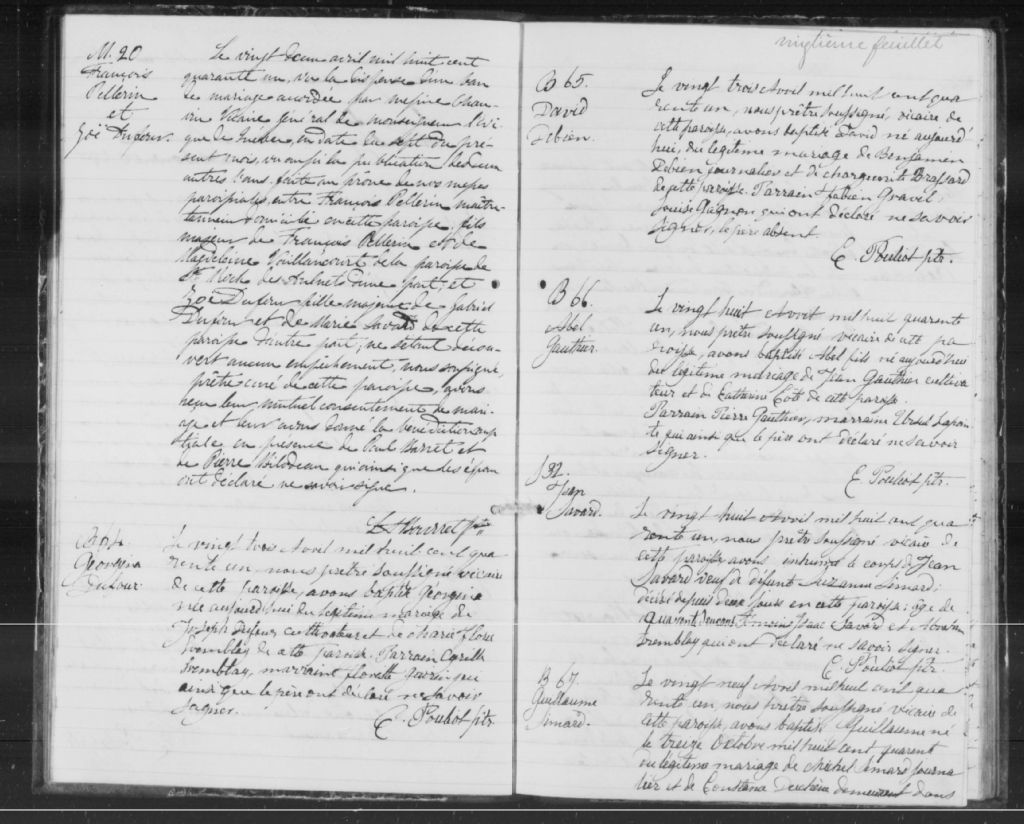 M. 20
François
Pellerin
et
Zoë Dufour.
Le vingt deux avril mil huit cent
quarante un, vu la dispense d'un ban
de mariage accordée par messire
Vicaire général de monseigneur l'Evê
que de Québec, en date du sept du pré-
sent mois, vu aussi la publication des deux
autres bans, faite au prône de nos messes
paroissiales, entre François Pellerin
domicilié en cette paroisse, fils
majeur de François Pellerin et de
Magdeleine Vaillancourt de la paroisse de
St Roch des Aulnets d'une part; et
Zoë Dufour fille majeure de Gabriel
Dufour et de Marie Savard de cette
paroisse d'autre part; ne s'étant décou-
vert aucun empêchement, nous soussigné,
prêtre curé de cette paroisse, avons
reçu leur mutuel consentement de mari-
age et leur avons donné la bénédiction nup
tiale en présence de Paul et
de Pierre Bilodeau qui ainsi que les époux
ont déclaré ne savoir signer.
ptre
Georgina
Dufour
Le vingt trois Avril mil huit cent qua
rente un nous prêtre soussigné vicaire
de cette paroisse, avons baptisé Georgina
née aujourd'hui du légitime mariage de
Joseph Dufour cultivateur et de Marie Flore
Tremblay de cette paroisse. Parrain Cyrille
Tremblay, marraine
ainsi que le père ont déclaré ne savoir
signer.
E. Pouliot ptr.
vingtième feuillet
B 65.
David
Debien.
Le vingt trois Avril mil huit cent qua
rente un, nous prêtre soussigné, vicaire de
cette paroisse, avons baptisé David né aujourd'
hui, du légitime mariage de Benjamen
Debien journalier et de Marguerite Brassard
de cette paroisse. Parrain Fabien Gravel,
Louise Gagnon qui ont déclaré ne savoir
signer, le père absent
E. Pouliot ptr.
B 66.
Abel
Gauthier.
Le vingt huit Avril mil huit quarente
un, nous prêtre soussigné vicaire de cette pa
roisse, avons baptisé Abel fils né aujourd'hui
du légitime mariage de Jean Gauthier cultiva
teur et de Catherine Coté de cette paroisse.
Parrain Pierre Gauthier, marraine Ursule Lapoin
te qui ainsi que le père ont déclaré ne savoir
signer.
E. Pouliot ptr.
S 32.
Jean
Savard.
Le vingt huit Avril mil huit cent qua
rente un, nous prêtre soussigné vicaire de
cette paroisse avons inhumé le corps de Jean
Savard veuf de défunt Suzanne Simard,
décédé depuis deux jours en cette paroisse: âgé de
quarante deux ans. Témoins Isaac Savard et Abraham
Tremblay qui ont déclaré ne savoir signer.
E. Pouliot ptr.
B 67
Guillaume
Simard.
Le vingt neuf Avril mil huit cent qua
rente un, nous prêtre soussigné vicaire de
cette paroisse, avons baptisé Guillaume né
le treize Octobre mil huit cent quarente
du légitime mariage de Michel Simard journa
lier et de Constance Duchêne demeurant dans